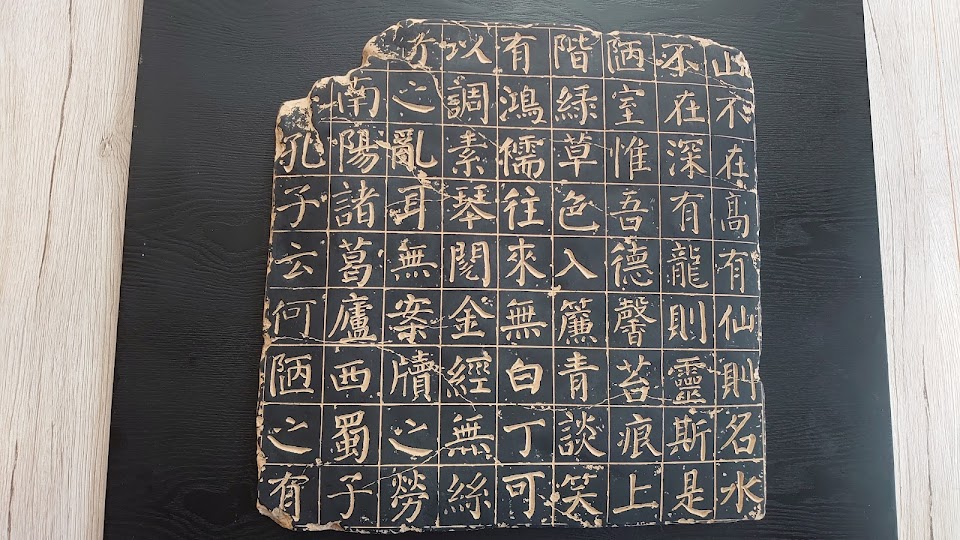 山不在髙有仙則名水
不在深有龍則靈斯是
陋室惟吾德馨苔痕上
階緑草色入簾青談笑
有鴻儒往來無白丁可
以調素琴閲金經無絲
竹之亂耳無案牘之勞
南陽諸葛廬西蜀子
孔子云何陋之有